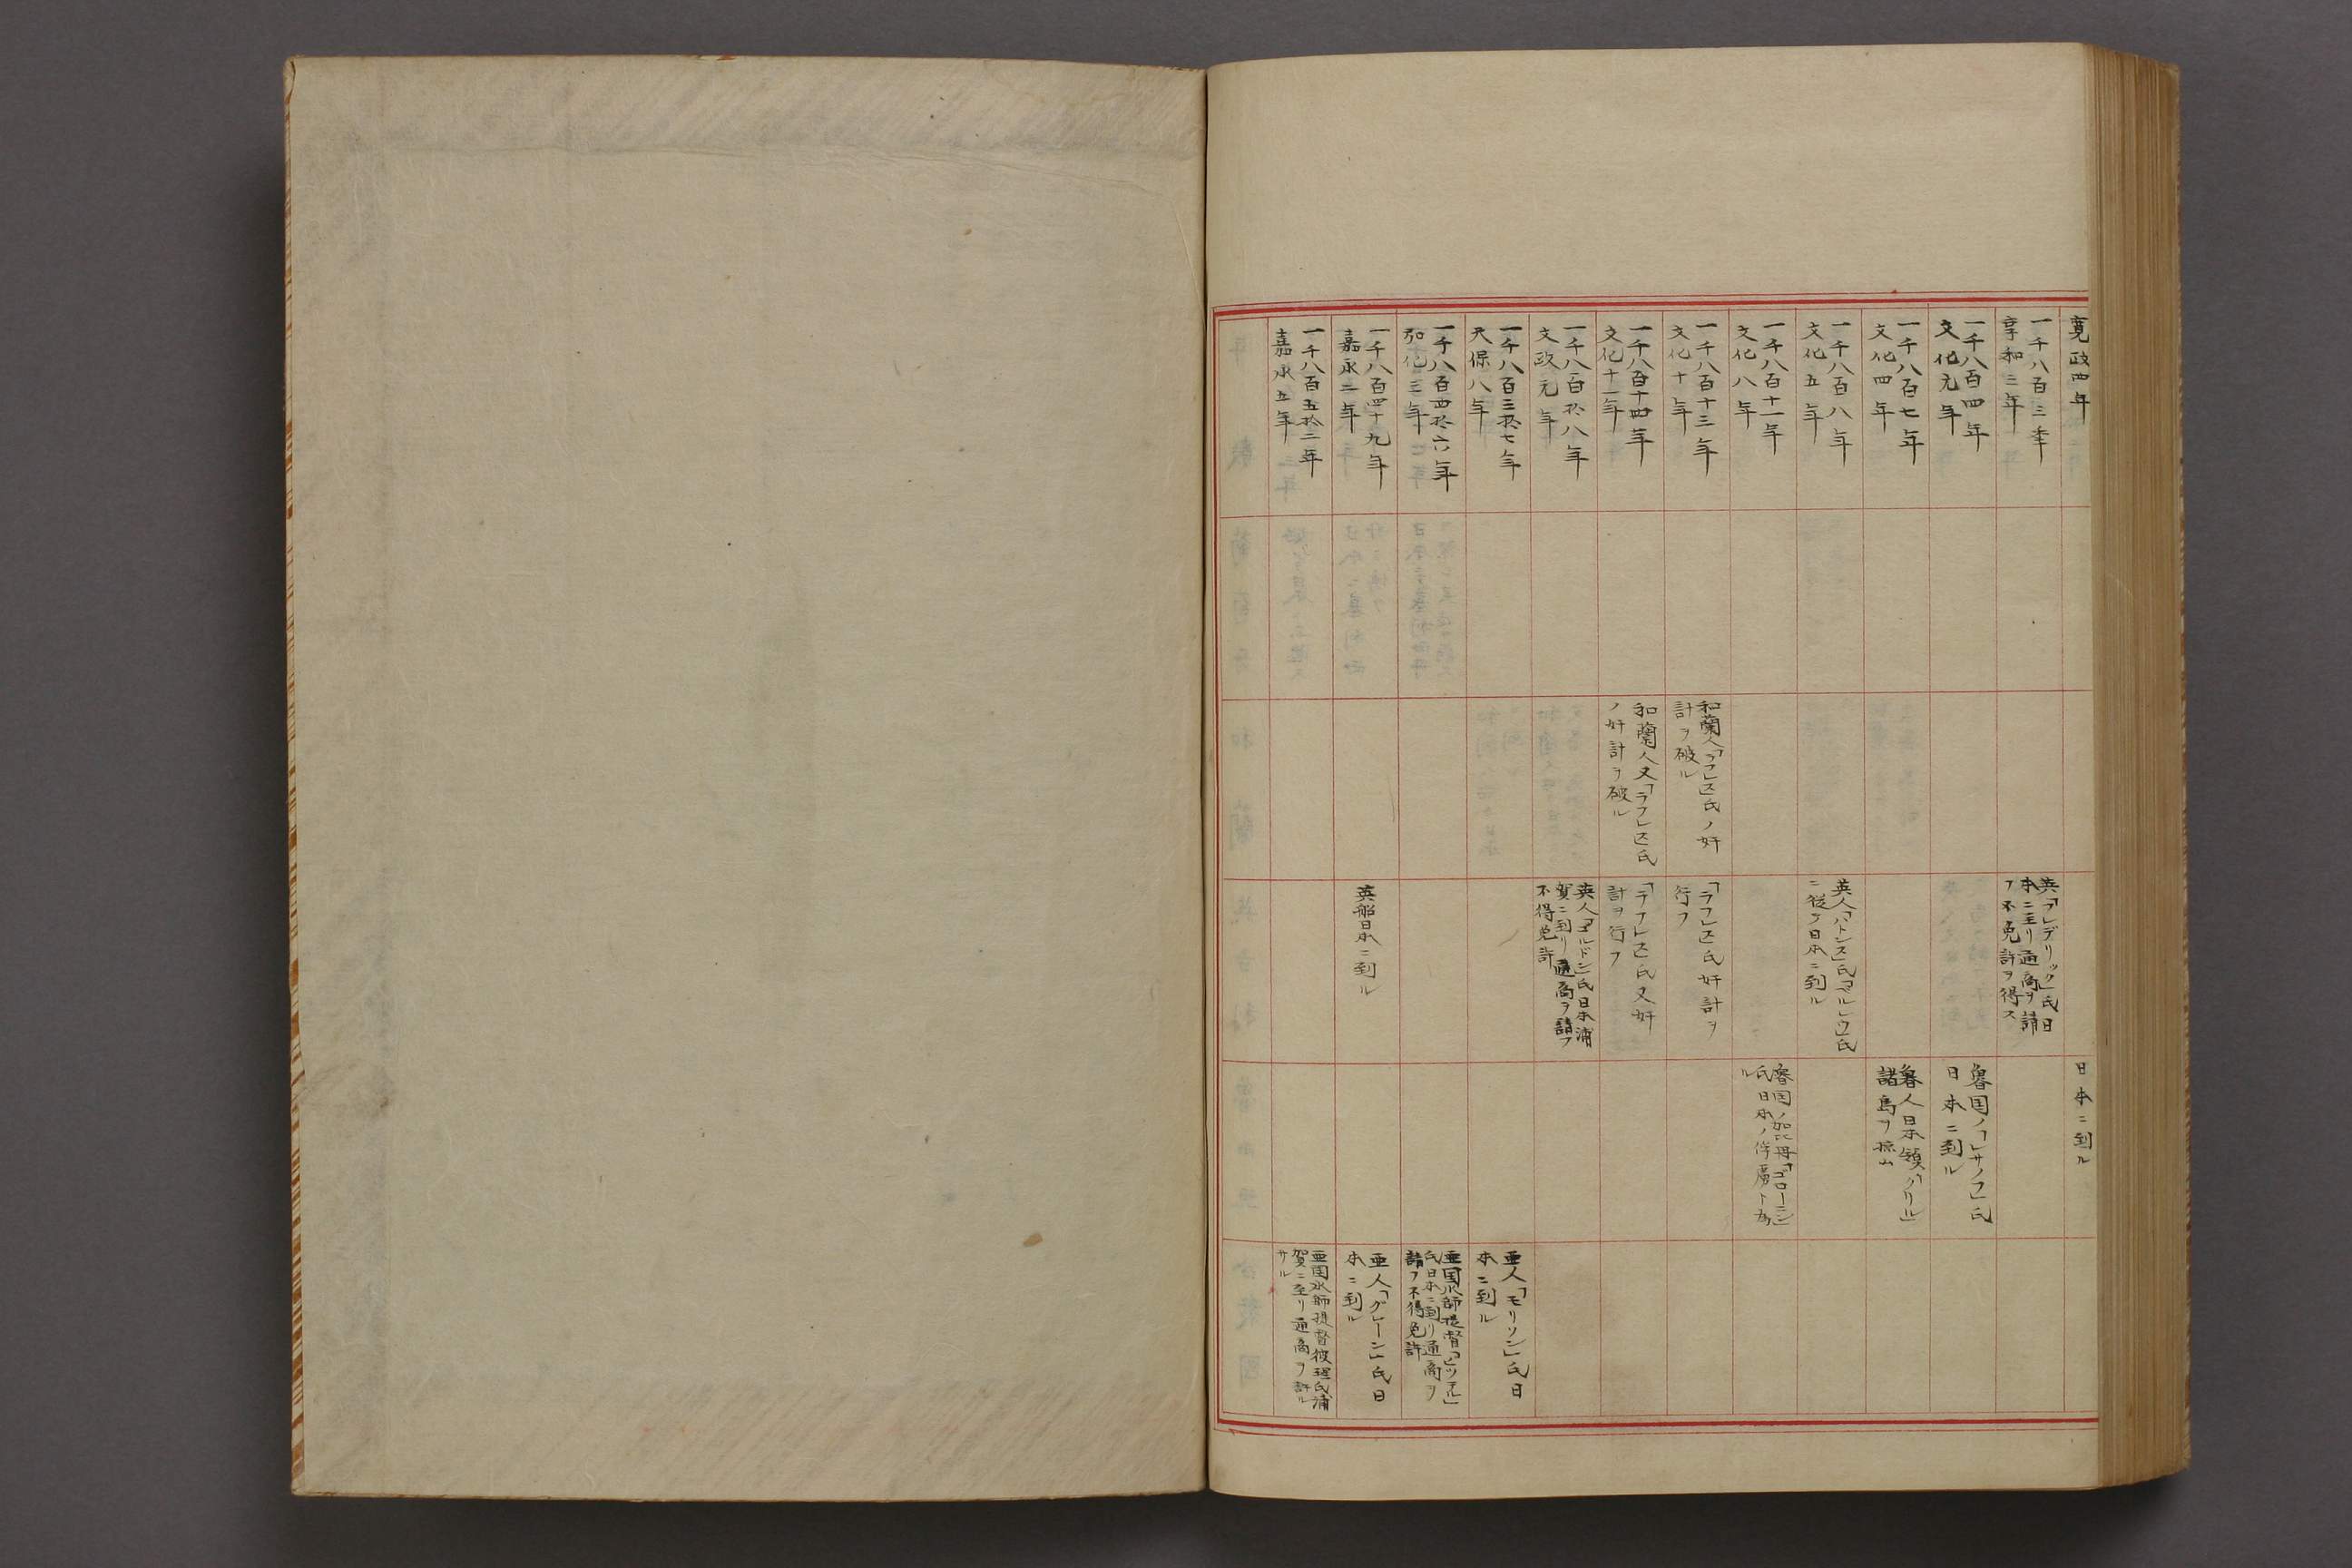 寛政四年
日本ニ到ル
一千八百三年
享和三年
英「フレデリック」氏日
本ニ至リ通商ヲ請
フ不免許ヲ得ス
一千八百四年
文化元年
魯国ノ「レサノフ」氏
日本ニ到ル
一千八百七年
文化四年
魯人日本領「クリル」
諸島ヲ掠ム
一千八百八年
文化五年
英人「ハトンス」氏「ペルレウ」氏
ニ従ヲ日本ニ到ル
一千八百十一年
文化八年
魯国ノ加比丹「ゴローニン」
氏日本ノ俘虜ト為
ル
一千八百十三年
文化十年
和蘭人「ラフレス」氏ノ奸
計ヲ破ル
「ラフレス」氏奸計ヲ
行フ
一千八百十四年
文化十一年
和蘭人又「ラフレス」氏
ノ奸計ヲ破ル
「ラフレス」氏又奸
計ヲ行フ
一千八百拾八年
文政元年
英人「ゴルドン」氏日本浦
賀ニ到リ通商ヲ請フ
不得免許
一千八百三拾七年
天保八年
亜人「モリソン」氏日
本ニ到ル
一千八百四拾六年
弘化三年
亜国水師提督「ビッデル」
氏日本ニ到リ通商ヲ
請フ不得免許
一千八百四十九年
嘉永二年
英船日本ニ到ル
亜人「グレーン」氏日
本ニ到ル
一千八百五拾二年
嘉永五年
亜国水師提督彼理氏浦
賀ニ至リ通商ヲ許ル
サル